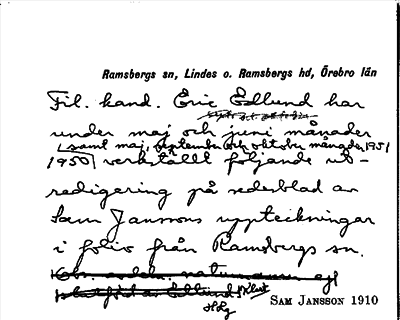 Ramsbergs sn, Lindes o. Ramsbergs hd, Örebro län
Fil. kand. Eric Edlund har
under maj och juni månader
(samt maj, september och oktober månader 1951)
1950 verkställt följande ut-
redigering på sedesblad av
Sam Janssons uppteckningar
i folio från Ramsbergs sn.
SAM JANSSON 1910